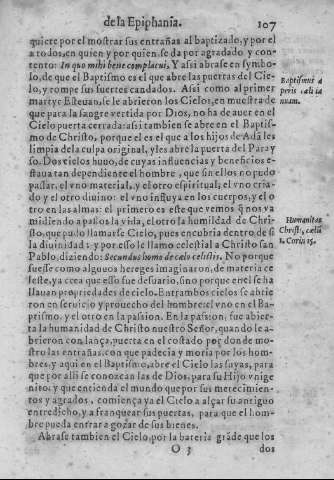 de la Epiphania. 107
quiere por el mostrar sus entrañas al baptizado, y por el
a todos, en quien y por quien se da por agradado y con-
tento: In quo mihi bene complacui, Y assi abrase en symbo-
lo, de que el Baptismo es el que abre las puertas del Cie-
lo, y rompe sus fuertes candados. Assi como al primer
martyr Esteuan, se le abrieron los Cielos, en muestra de
que para la sangre vertida por Dios, no ha de auer en el
Cielo puerta cerrada: assi tambien se abre en el Baptis-
mo de Christo, porque el es el que a los hijos de Adã les
limpia de la culpa original, y les abre la puerta del Para y
so. Dos cielos huuo, de cuyas influencias y beneficios e-
staua tan dependiente el hombre, que sin ellos no pudo
passar, el vno material, y el otro espiritual; el vno cria-
do, y el otro diuino: el vno influya en los cuerpos, y el o-
tro en las almas: el primero es este que vemos q̃ nos va
midiendo a passos la vida, el otro la humildad de Chri-
sto, que pudo llamarse Cielo, pues encubria dentro de si
la diuinidad: y por esso le llamo celestial a Christo san
Pablo, diziendo: Secundus homo de cælo cælestis. No porque
fuesse como algunos hereges imaginaron, de materia ce
leste, ya creea que esso fue desuario, sino porque en el se ha
llauan propriedades de cielo. Entrambos cielos se abrie
ron en seruicio y prouecho del hombre: el vno en el Bap-
tismo, y el otro en la passion. En la passion, fue abier-
ta la humanidad de Christo nuestro Señor, quando le a-
brieron con lança, puerta en el costado por donde mo-
stro las entrañas, con que padecia y moria por los hom-
bres, y aqui en el Baptismo, abre el Cielo las suyas, para
que por alli se conozcan las de Dios, para su Hijo vnige
nito, y que entienda el mundo que por sus merecimien-
tos y agrados, comiença ya el Cielo a alçar su antiguo
entredicho, y a franquear sus puertas, para que el hom-
bre pueda entrar a gozar de sus bienes.
Abrase tambien el Cielo, por la bateria grãde que los
O 3 dos
Baptismus a
peris cæli ia
nuam.
Humanitas
Christi, cælũ
1. Corin 15.